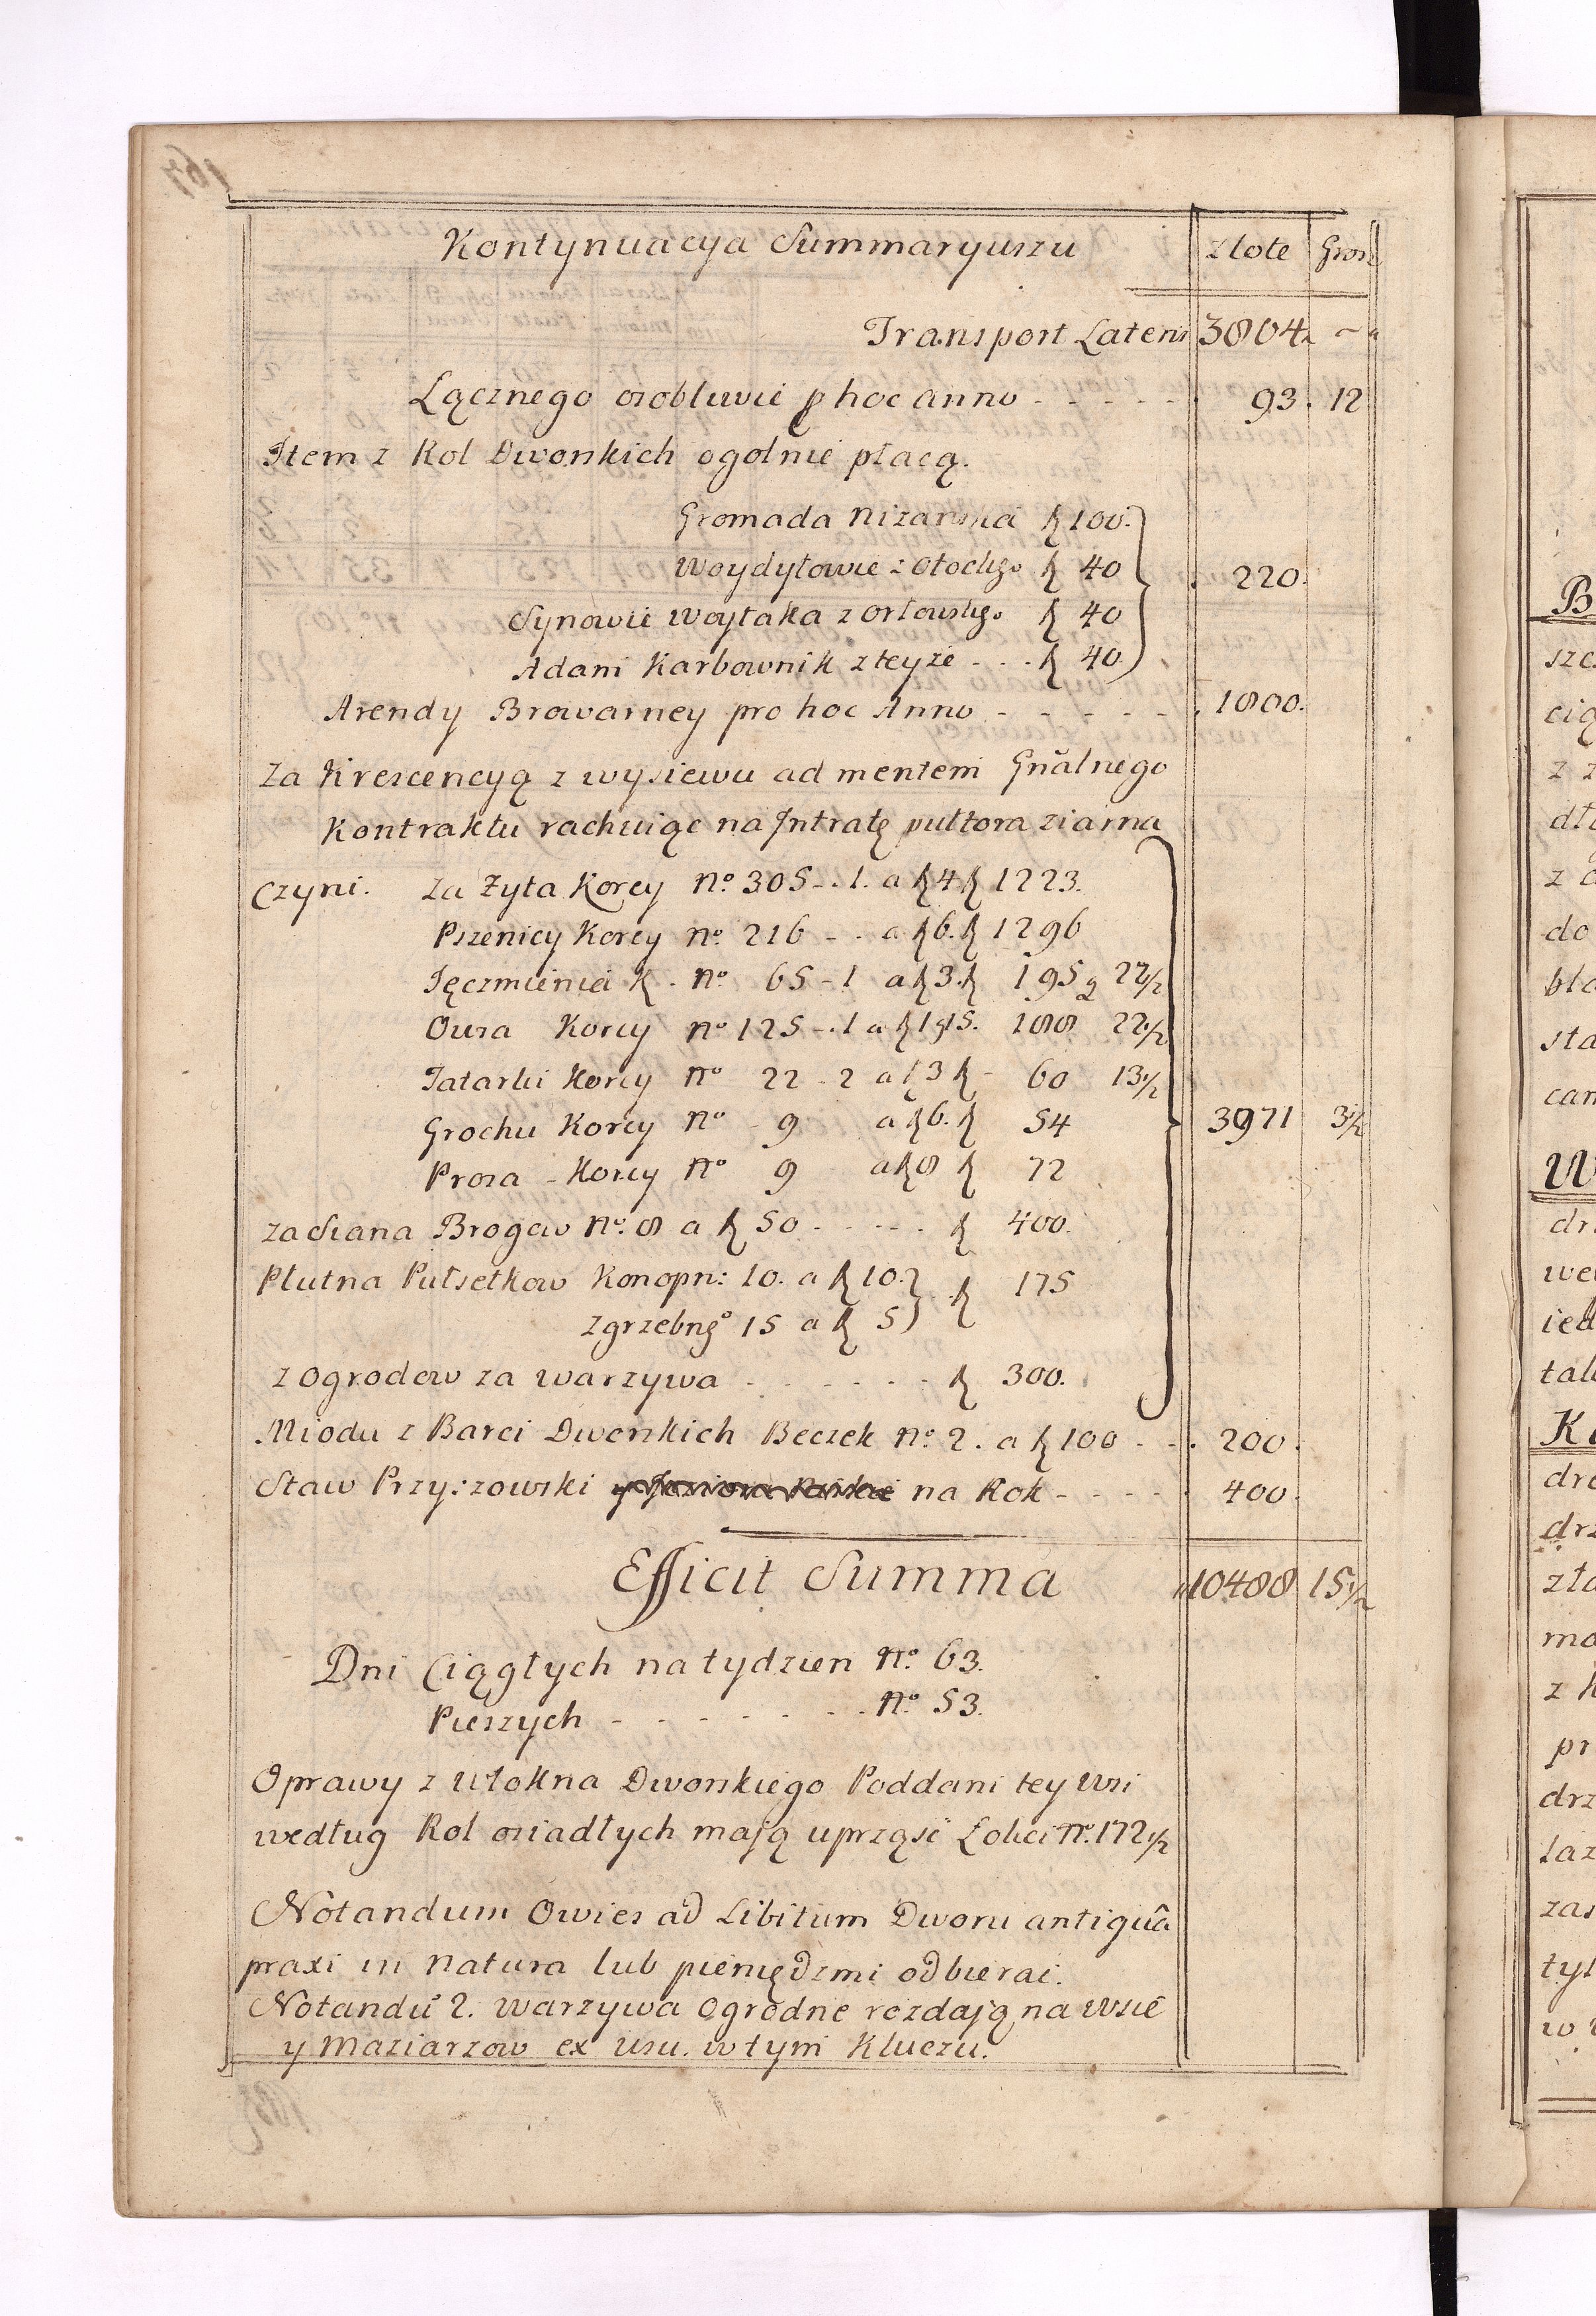 Kontynuacya Summaryuszu złote Grosz
Transport Lateris 3804 –
Łącznego osobliwie p hoc anno - - - - - 93. 12
Item z Rol Dworskich ogolnie płacą.
Gromada Nizanska zł 100.
Woydyłowie z Otockgo zł 40 220.
Synowie Woytaka z Orłowskgo zł 40
Adam Karbownik z teyze - - . zł 40.
Arendy Browarney pro hoc Anno - - - - - 1800.
Za Krescencyą z wysiewu ad mentem Gnalnego
Kontraktu rachuiąc na Intratę pułtora ziarna
Czyni. Za Zyta Korcy No. 305 - . 1. a zł 4. zł 1223.
Pszenicy Korcy No. 216 - . a zł 6. zł 1296
Jęczmienia K. No. 65 - 1 a zł 3. zł 195 g 22 1/2
Owsa Korcy No 125 - . 1 a zł 1 g 15. 188 22 1/2
Tatarki Korcy No 22 - 2 a zł 3 zł - 60 13 1/2
Grochu Korcy No 9 a zł 6. zł 54 3971 3 1/2
Prosa - Korcy No 9 a zł 8 zł 72
za Siana Brogow No. 8 a zł 50 - - - - . zł 400.
Płutna Pułsetkow Konopn: 10. a zł 10. zł 175
Zgrzebng° 15 a zł 5
z Ogrodow za warzywa - - - - - - . zł 300.
Miodu z Barci Dworskich Beczek No. 2. a zł 100 - - . 200.
Staw Przyszowski na Rok - - - - - 400.
Efficit Summa 10488 15 1/2
Dni Ciągłych na tydzien No. 63.
Pieszych - - - - - - - . No. 53.
Oprawy z włokna Dworskiego Poddani tey Wsi
według Rol osiadłych mają uprząść Łokci No. 172 1/2
Notandum Owies ad Libitum Dworu antiquâ
praxi in natura lub pieniędzmi odbierac.
Notandũ 2. Warzywa Ogrodne rozdają na Wsie
y Maziarzow ex usu. w tym Kluczu.